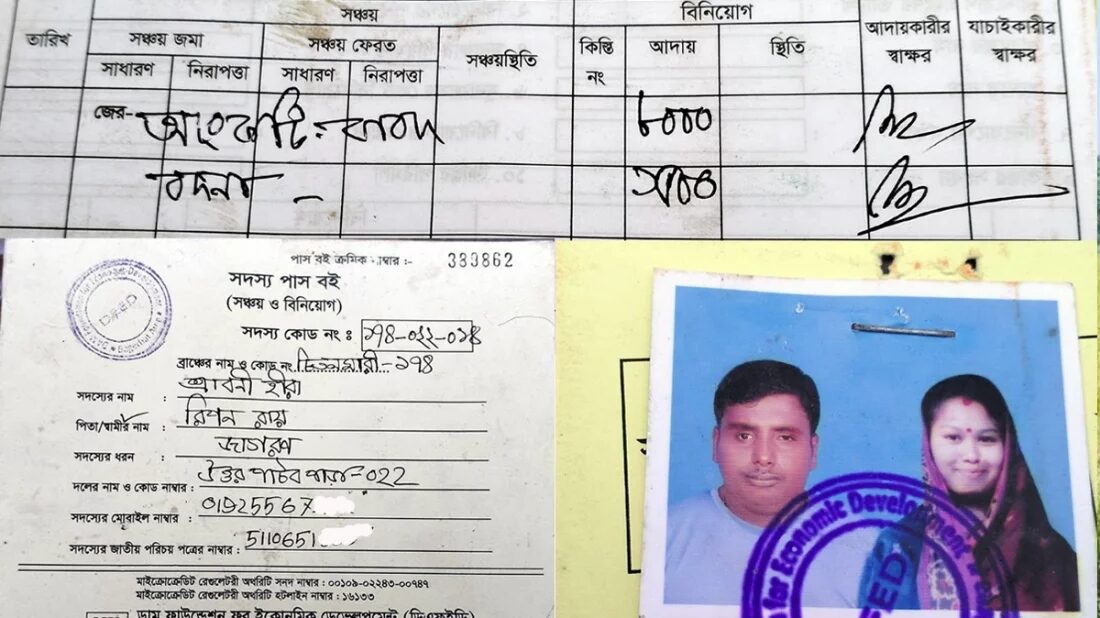 সঞ্চয় বিনিয়োগ
তারিখ সঞ্চয় জমা সঞ্চয় ফেরত সঞ্চয়স্থিতি কিস্তি নং আদায় স্থিতি আদায়কারীর স্বাক্ষর যাচাইকারীর স্বাক্ষর
সাধারণ নিরাপত্তা সাধারণ নিরাপত্তা
জের- ৮০০০
পাস বই ক্রমিক নাম্বার :- 339862
সদস্য পাস বই
(সঞ্চয় ও বিনিয়োগ)
সদস্য কোড নং : ১৭৪-০২২-০১৪
ব্রাঞ্চের নাম ও কোড নং চিতলমারী-১৭৪
সদস্যের নাম : শ্রাবনী হীরা
পিতা/স্বামীর নাম : রিপন রায়
সদস্যের ধরন : জাগরণ
দলের নাম ও কোড নাম্বার : -০২২
সদস্যের মোবাইল নাম্বার : 01925567
সদস্যের জাতীয় পরিচয় পত্রের নাম্বার : 5110651
মাইক্রোক্রেডিট রেগুলেটরী অথরিটি সনদ নাম্বার : ০০১০৯-০২২৪৩-০০৭৪৭
মাইক্রোক্রেডিট রেগুলেটরী অথরিটি হটলাইন নাম্বার : ১৬১৩৩
ডাম ফাউন্ডেশন ফর ইকোনমিক ডেভেলপমেন্ট (ডিএফইডি)
for Economic Development
DFED